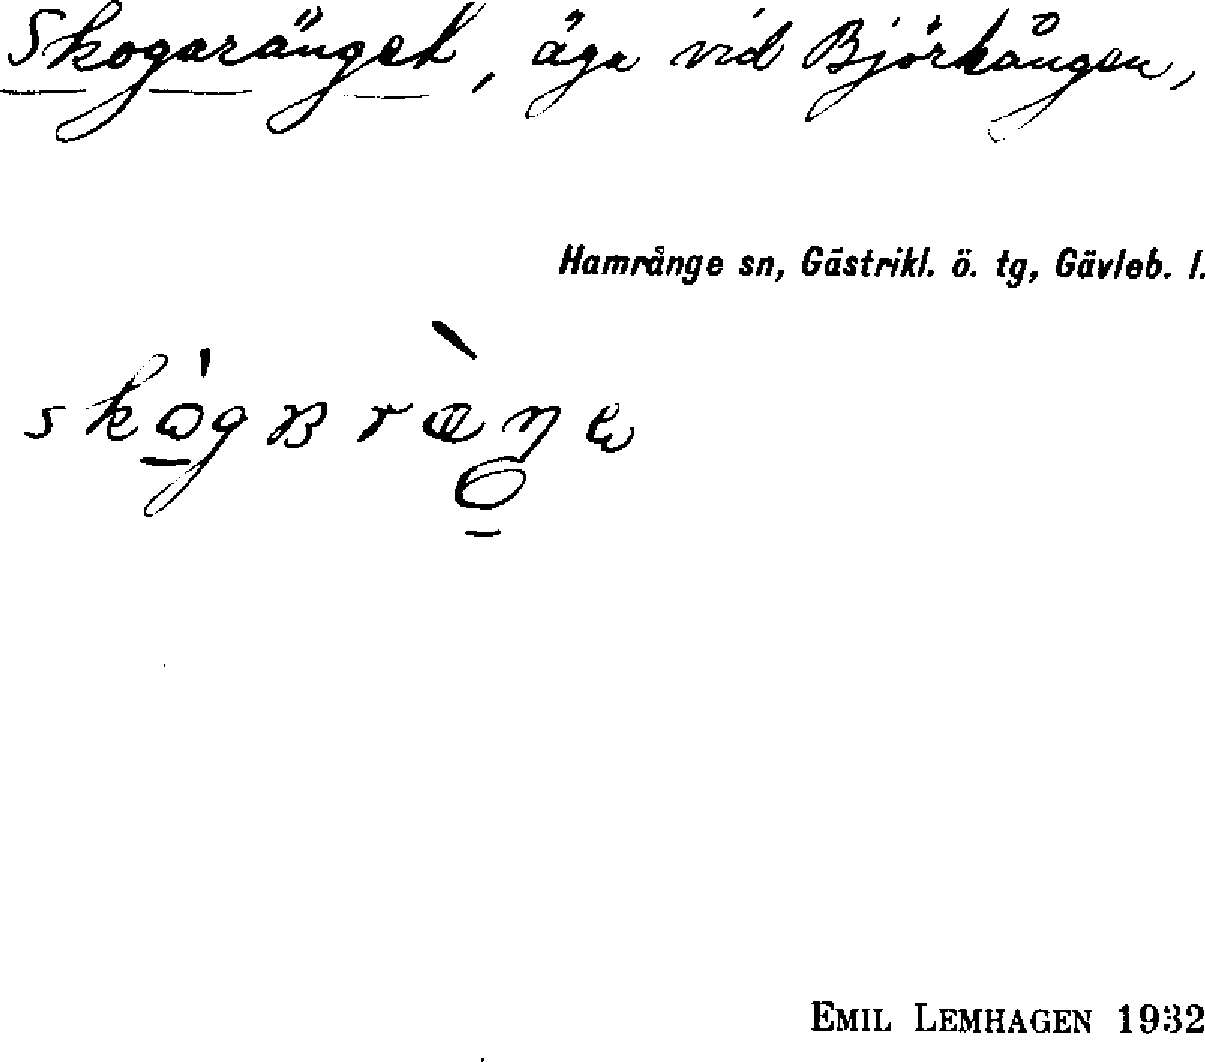 Skogaränget, äga vid Björkången,
Hamrånge sn, Gästrikl. ö. tg, Gävleb. l.
EMIL LEMHAGEN 1932